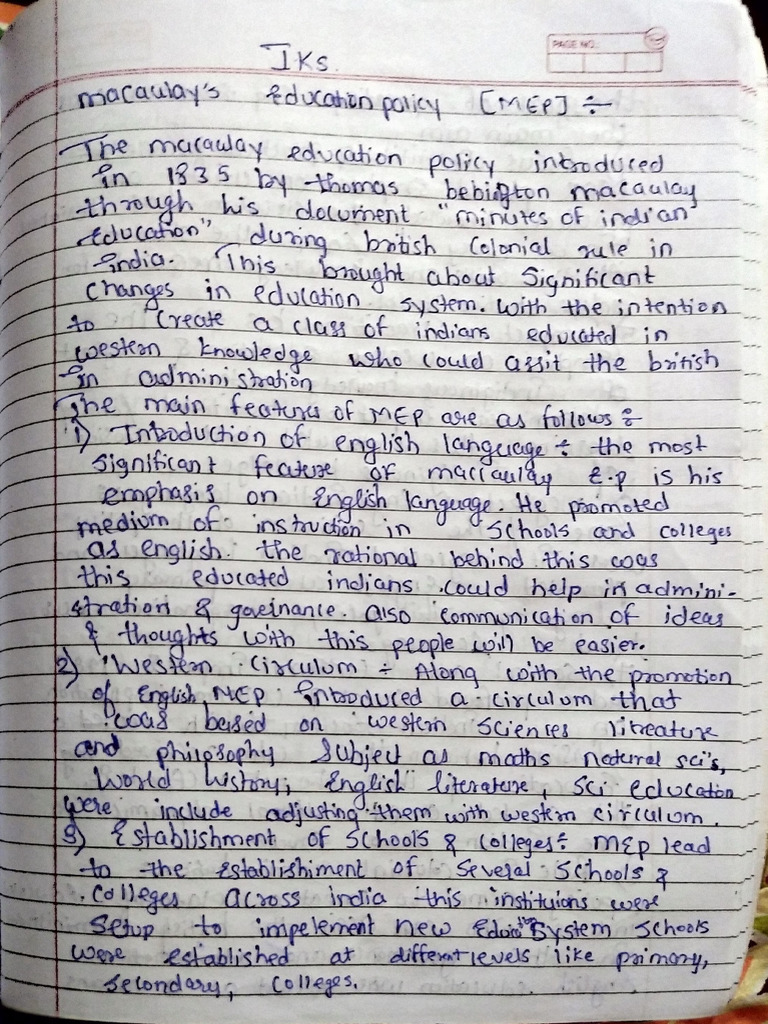 IKS
PAGE NO.
macaulay's Education policy [MEP] ÷
The macaulay education policy introduced
in 1835 by thomas bebington macaulay
through his document "minutes of indian
Education" during british colonial rule in
india. This brought about Significant
changes in education system. with the intention
to create a class of indians educated in
western knowledge who could assit the british
in administration
The main features of MEP are as follows ÷
1) Introduction of english language ÷ the most
significant feature of maccaulay E.p is his
emphasis on English language. He promoted
medium of instruction in schools and colleges
as english. the rational behind this was
this educated indians could help in admini-
stration & goveinance. also communication of ideas
& thoughts with this people will be easier.
2) Western Circulum ÷ Along with the promotion
of English, MEP introduced a circulum that
was based on western sciences litreature
and philosophy subject as maths natural sci's,
World history, English literature, sci education
were include adjusting them with western circulum.
3) Establishment of schools & colleges ÷ MEp lead
to the Establishiment of several schools &
colleges across india this instituians were
setup to impelement new System schools
were established at different levels like primary,
secondary, colleges.